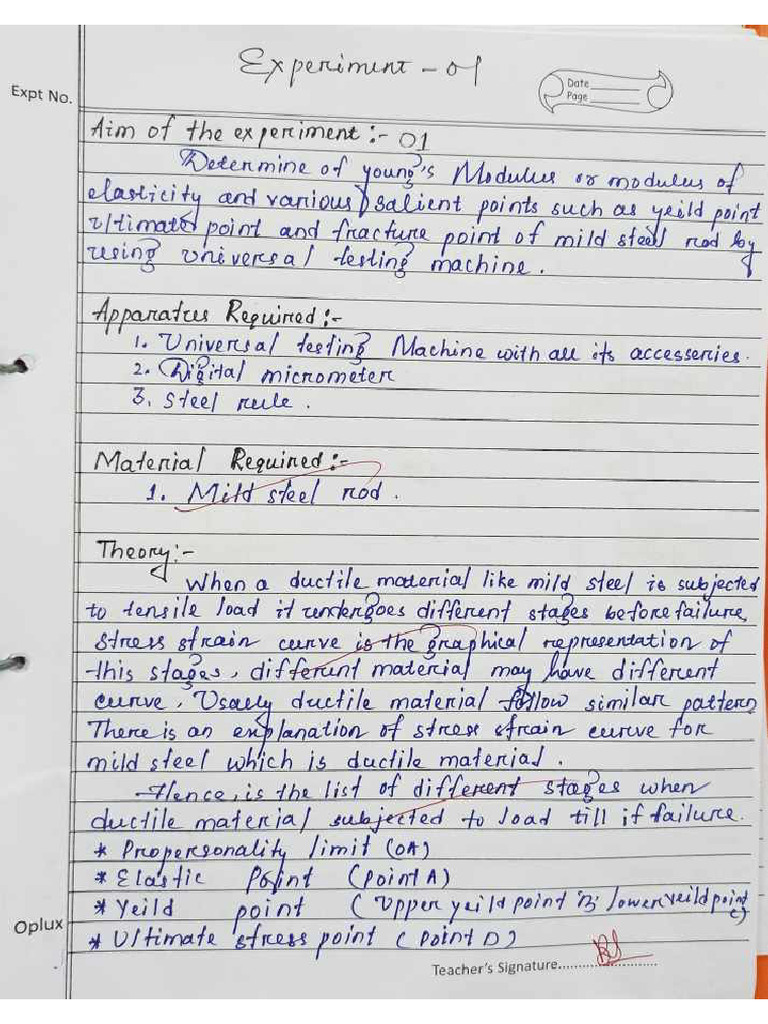 Experiment - 01
Expt No.
Date
Page
Aim of the experiment :- 01
Determine of young's Modulus or modulus of
elasticity and various salient points such as yeild point
Ultimate point and fracture point of mild steel rod by
using universal testing machine.
Apparatus Required :-
1. Universal testing Machine with all its accesseries.
2. Digital micrometer
3. Steel rule.
Material Required :-
1. Mild steel rod.
Theory :-
When a ductile material like mild steel is subjected
to tensile load it undergoes different stages before failure,
stress strain curve is the graphical representation of
this stages, different material may have different
curve, Usally ductile material follow similar pattern
There is an explanation of stress strain curve for
mild steel which is ductile material.
Hence, is the list of different stages when
ductile material subjected to load till if failure.
* Propersonality limit (OA)
* Elastic Point (Point A)
* Yeild point (Upper yeild point 'B' lower yeild point
c)
Oplux
* Ultimate stress point (Point D)
Teacher's Signature